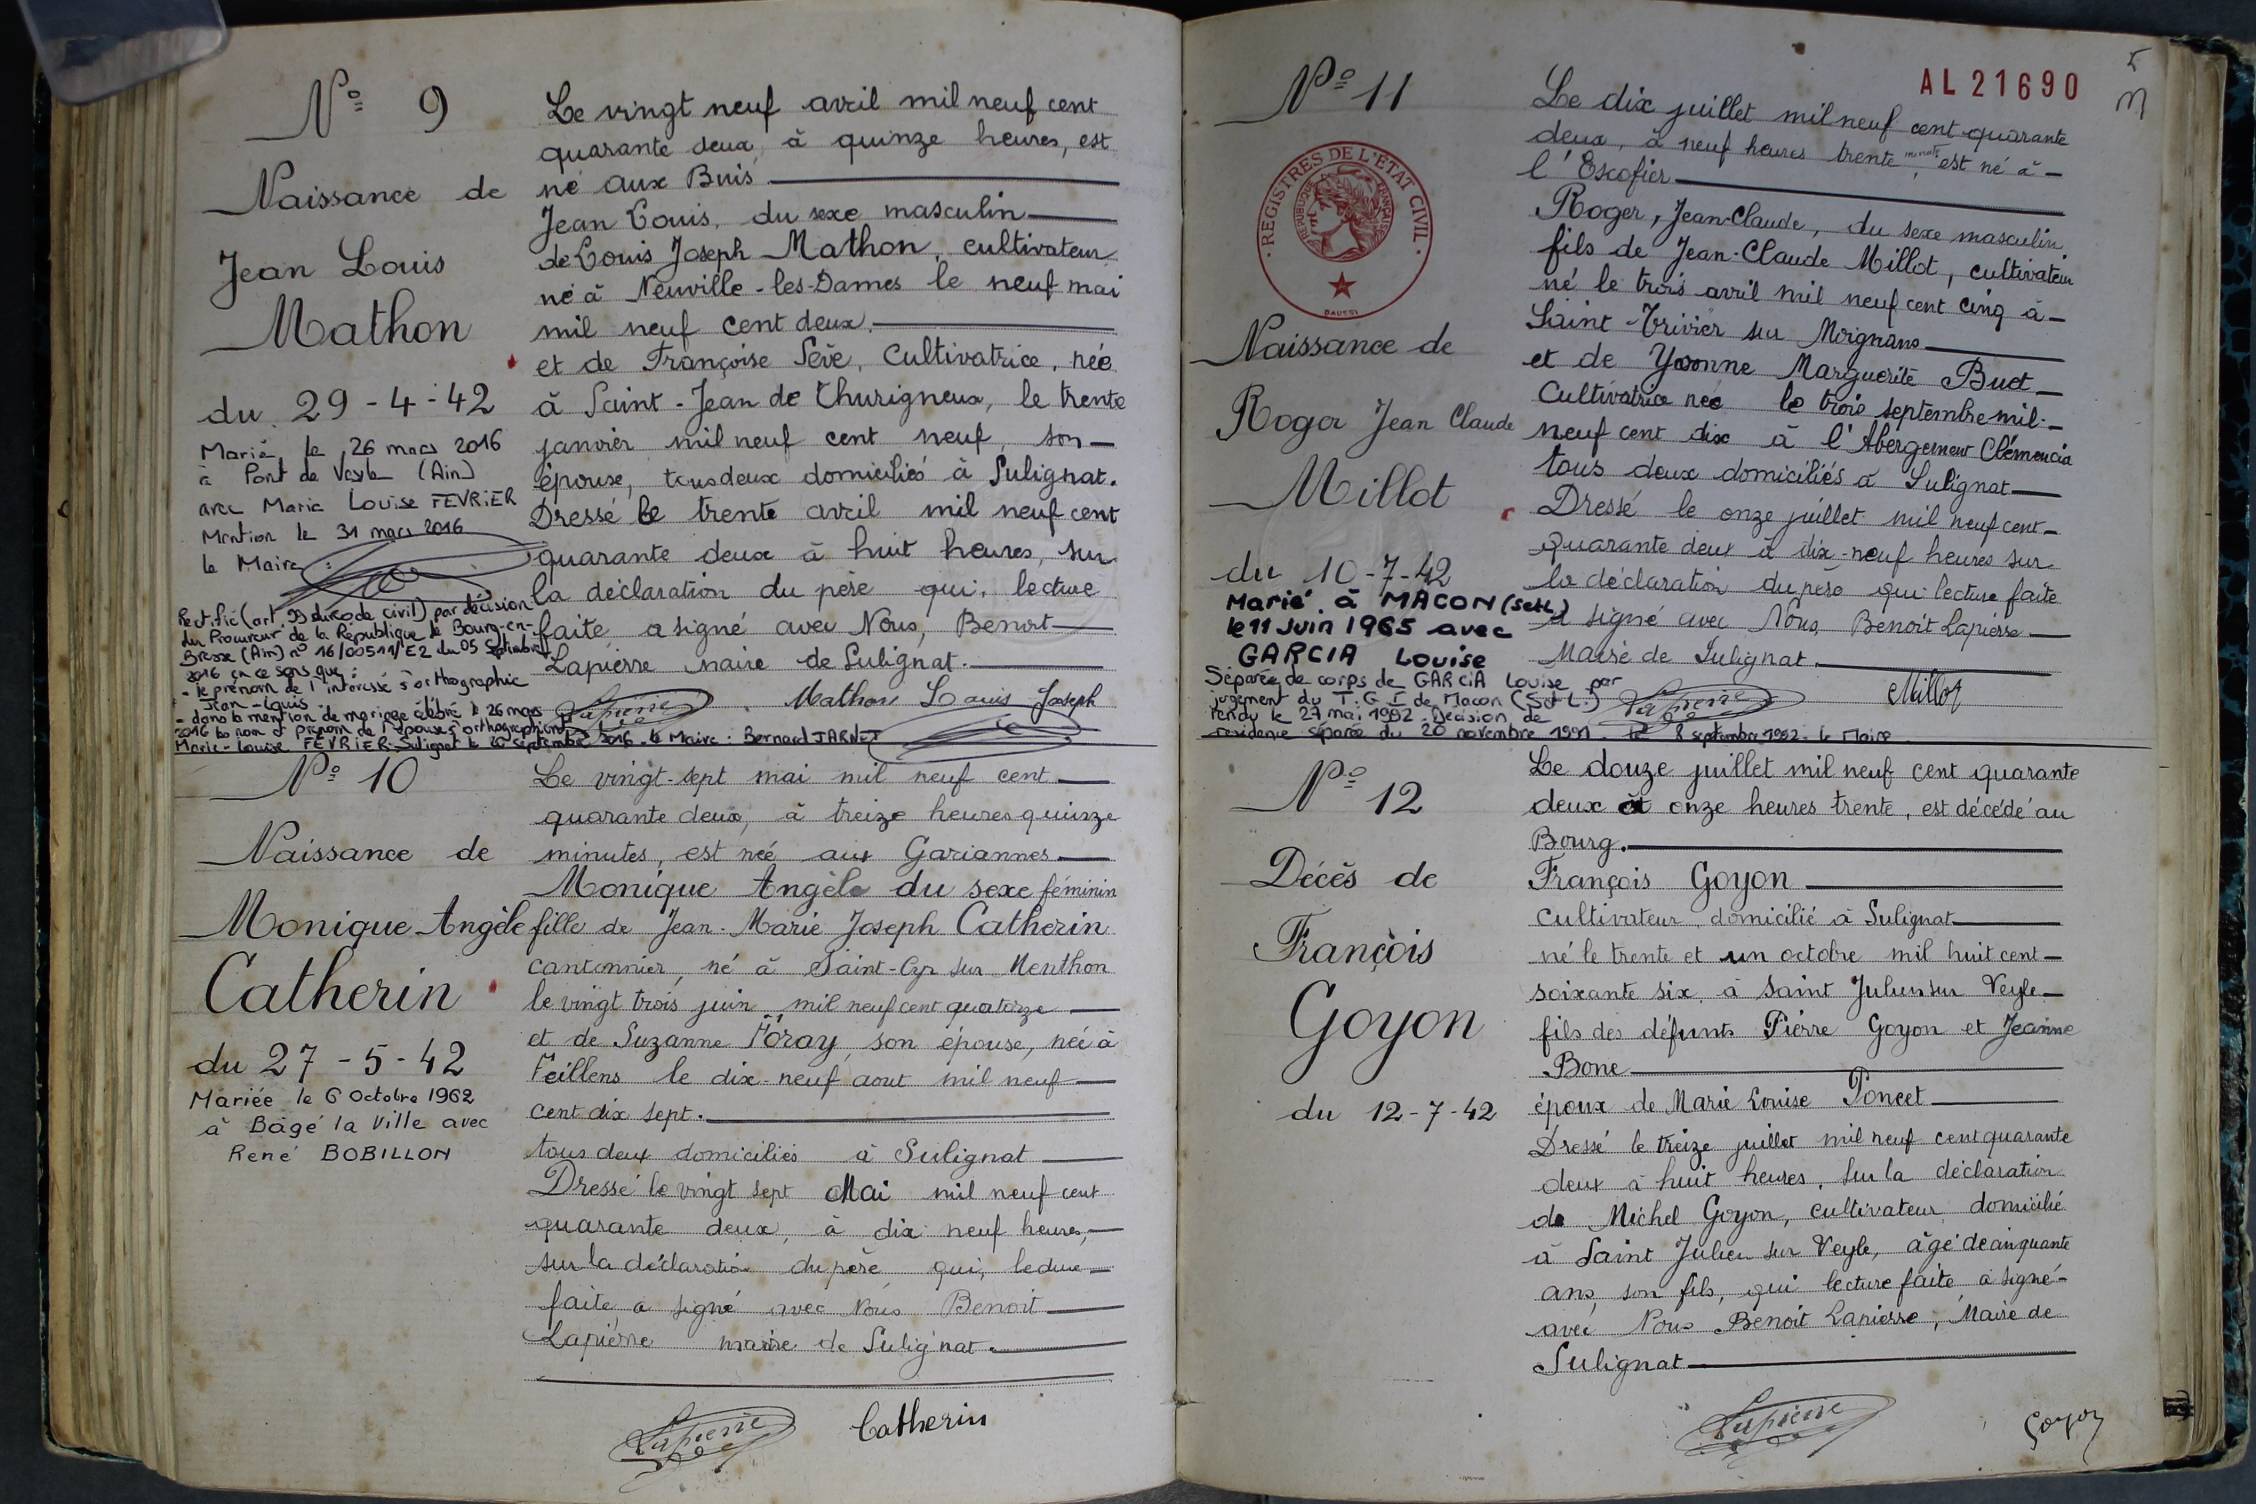 Nº 9
Naissance de
Jean Louis
Mathon
du 29-4-42
Marié le 26 mars 2016
à Pont de Veyle (Ain)
avec Marie Louise FEVRIER
Mention le 31 mars 2016
le Maire :
Rectifié (art. 99 du code civil) par décision
du Procureur de la République de Bourg-en-
Bresse (Ain) nº 16/00511/E2 du 05 Septembre
2016 en ce sens que :
- le prénom de l'intéressé s'orthographie
Jean-Louis
- dans la mention de mariage célébré le 26 mars
2016 les nom et prénom de l'épouse s'orthographient
Marie-Louise FEVRIER. Sulignat le 20 septembre 2016. le Maire : Bernard JARNET
Le vingt neuf avril mil neuf cent
quarante deux, à quinze heures, est
né aux Buis
Jean Louis, du sexe masculin
de Louis Joseph Mathon, cultivateur
né à Neuville-les-Dames le neuf mai
mil neuf cent deux.
et de Françoise Sève, cultivatrice, née
à Saint-Jean de Thurigneux, le trente
janvier mil neuf cent neuf, son
épouse, tous deux domiciliés à Sulignat.
Dressé le trente avril mil neuf cent
quarante deux à huit heures, sur
la déclaration du père qui, lecture
faite a signé avec Nous, Benoit
Lapierre maire de Sulignat.
Lapierre Mathon Louis Joseph
Nº 10
Naissance de
Monique Angèle
Catherin
du 27-5-42
Mariée le 6 Octobre 1962
à Bâgé la Ville avec
René BOBILLON
Le vingt-sept mai mil neuf cent
quarante deux, à treize heures quinze
minutes, est née aux Gariannes
Monique Angèle du sexe féminin
fille de Jean-Marie Joseph Catherin
cantonnier, né à Saint-Cyr sur Menthon
le vingt trois juin mil neuf cent quatorze
et de Suzanne Foray, son épouse, née à
Feillens le dix-neuf aout mil neuf
cent dix sept.
tous deux domiciliés à Sulignat
Dressé le vingt sept Mai mil neuf cent
quarante deux, à dix neuf heures,
sur la déclaration du père qui, lecture
faite, a signé avec Nous Benoit
Lapierre maire de Sulignat.
Lapierre Catherin
AL 21690
5
Nº 11
REGISTRES DE L'ETAT CIVIL
REPUBLIQUE FRANÇAISE
Naissance de
Roger Jean Claude
Millot
du 10-7-42
Marié à MACON (S et L)
le 11 Juin 1965 avec
GARCIA Louise
Séparée de corps de GARCIA Louise par
jugement du T. G. I de Macon (S et L.)
rendu le 27 mai 1992. Décision de
résidence séparée du 20 novembre 1991. le 8 septembre 1992. le Maire
Le dix juillet mil neuf cent quarante
deux, à neuf heures trente minute, est né à
l'Escofier
Roger, Jean-Claude, du sexe masculin
fils de Jean-Claude Millot, cultivateur
né le trois avril mil neuf cent cinq à
Saint-Trivier sur Moignans
et de Yvonne Marguerite Buet
Cultivatrice née le trois septembre mil
neuf cent dix à l'Abergement Clémencia
tous deux domiciliés à Sulignat
Dressé le onze juillet mil neuf cent
quarante deux à dix-neuf heures sur
la déclaration du père qui lecture faite
a signé avec Nous, Benoit Lapierre
Maire de Sulignat.
Lapierre Millot
Nº 12
Décès de
François
Goyon
du 12-7-42
Le douze juillet mil neuf cent quarante
deux à onze heures trente, est décédé au
Bourg.
François Goyon
cultivateur domicilié à Sulignat
né le trente et un octobre mil huit cent
soixante six à Saint Julien sur Veyle
fils des défunts Pierre Goyon et Jeanne
Bone
époux de Marie Louise Poncet
Dressé le treize juillet mil neuf cent quarante
deux à huit heures, sur la déclaration
de Michel Goyon, cultivateur domicilié
à Saint Julien sur Veyle, âgé de cinquante
ans, son fils, qui lecture faite a signé
avec Nous Benoit Lapierre, Maire de
Sulignat
Lapierre Goyon